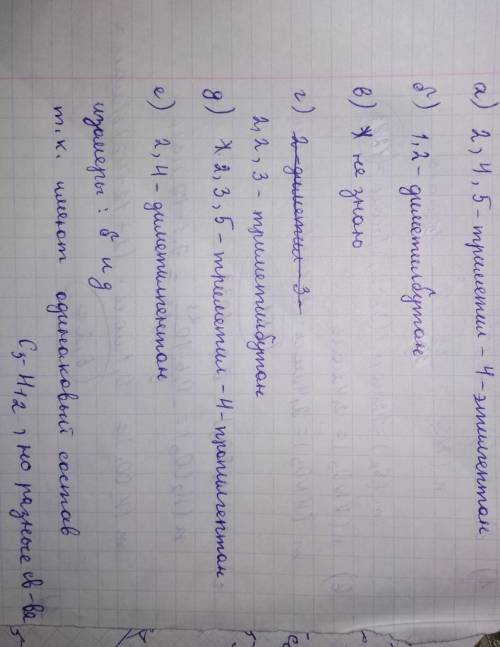 а) 2, 4, 5 - триметил - 4 - этилгептан
б) 1, 2 - диметилбутан
в) не знаю
г) 2 - диметил - 3 -
2, 2, 3 - триметилбутан
д) 2, 3, 5 - триметил - 4 - пропилгептан.
е) 2, 4 - диметилпентан
изомеры: б и д
т.к. имеют одинаковый состав
C5 - H12, но разные св-ва